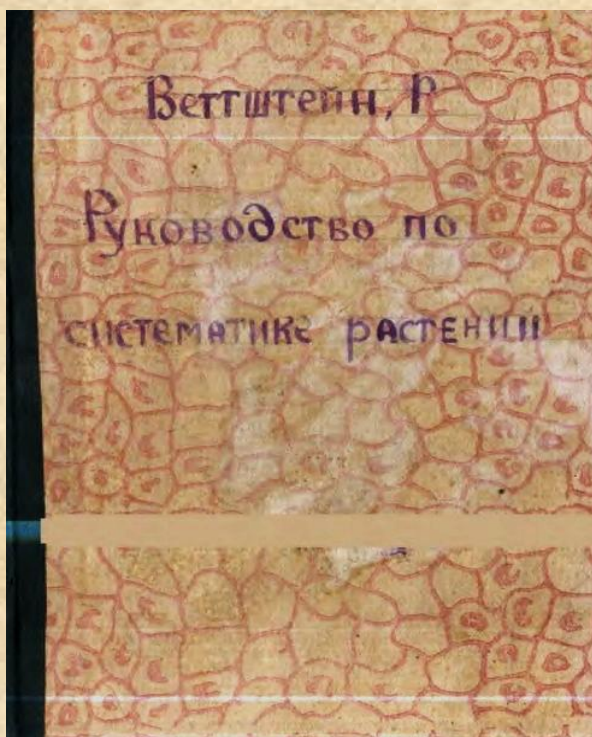 Веттштейн, Р
Руководство по
систематике растений